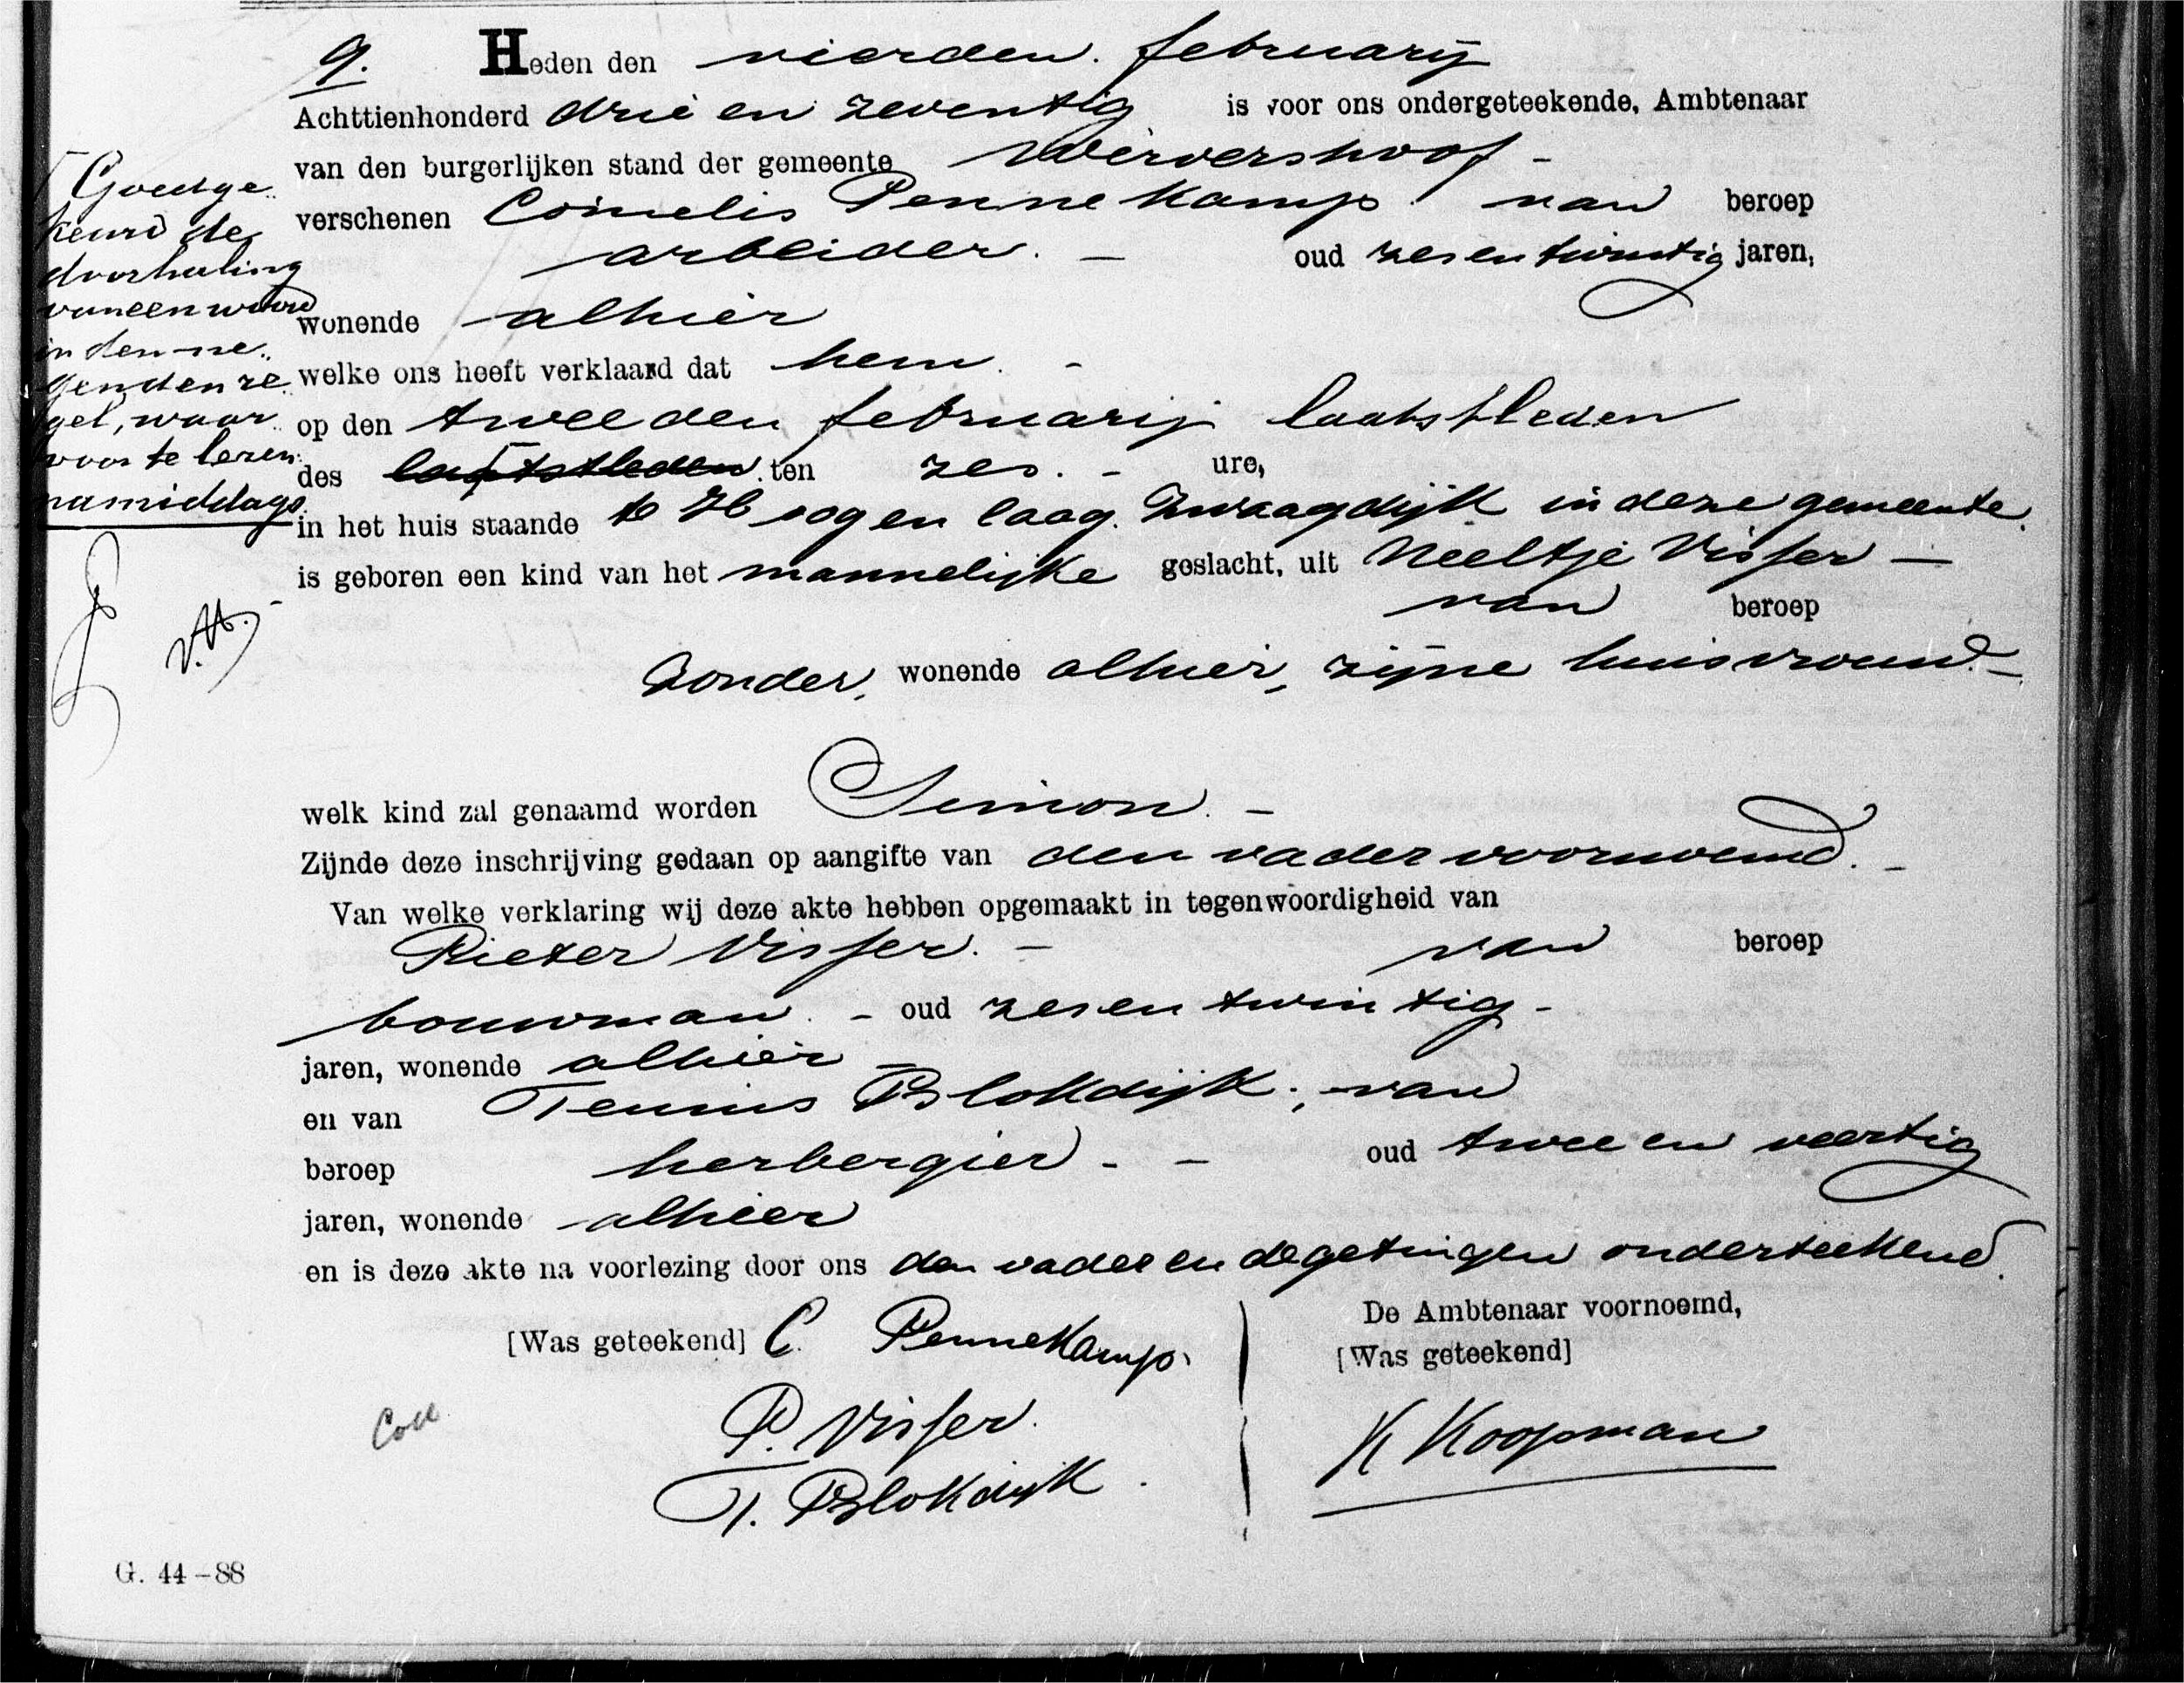 9. Heden den vierden februarij
Achttienhonderd drie en zeventig is voor ons ondergeteekende, Ambtenaar
van den burgerlijken stand der gemeente Wervershoof -
verschenen Cornelis Pennekamp van beroep
arbeider. - oud zes en twintig jaren,
wonende alhier
welke ons heeft verklaard dat hem. -
op den tweeden februarij laatstleden
des laatstleden ten zes. - ure,
in het huis staande te Hoog en laag Zwaagdijk in deze gemeente.
is geboren een kind van het mannelijke geslacht, uit Neeltje Visser -
van beroep
Zonder, wonende alhier, zijne huisvrouw. -
welk kind zal genaamd worden Simon. -
Zijnde deze inschrijving gedaan op aangifte van den vader voornoemd. -
Van welke verklaring wij deze akte hebben opgemaakt in tegenwoordigheid van
Pieter Visser. - van beroep
bouwman. - oud zes en twintig -
jaren, wonende alhier -
en van Teunis Blokdijk, van
beroep herbergier. - oud twee en veertig
jaren, wonende alhier
en is deze akte na voorlezing door ons den vader en de getuigen onderteekend.
[Was geteekend] C. Pennekamp.
P. Visser.
T. Blokdijk.
De Ambtenaar voornoemd,
[Was geteekend]
K Koopman
Goedge„
keurd de
doorhaling
van een woord
in den ne„
genden re„
gel, waar„
voor te lezen:
namiddags.
Coll
G. 44-88